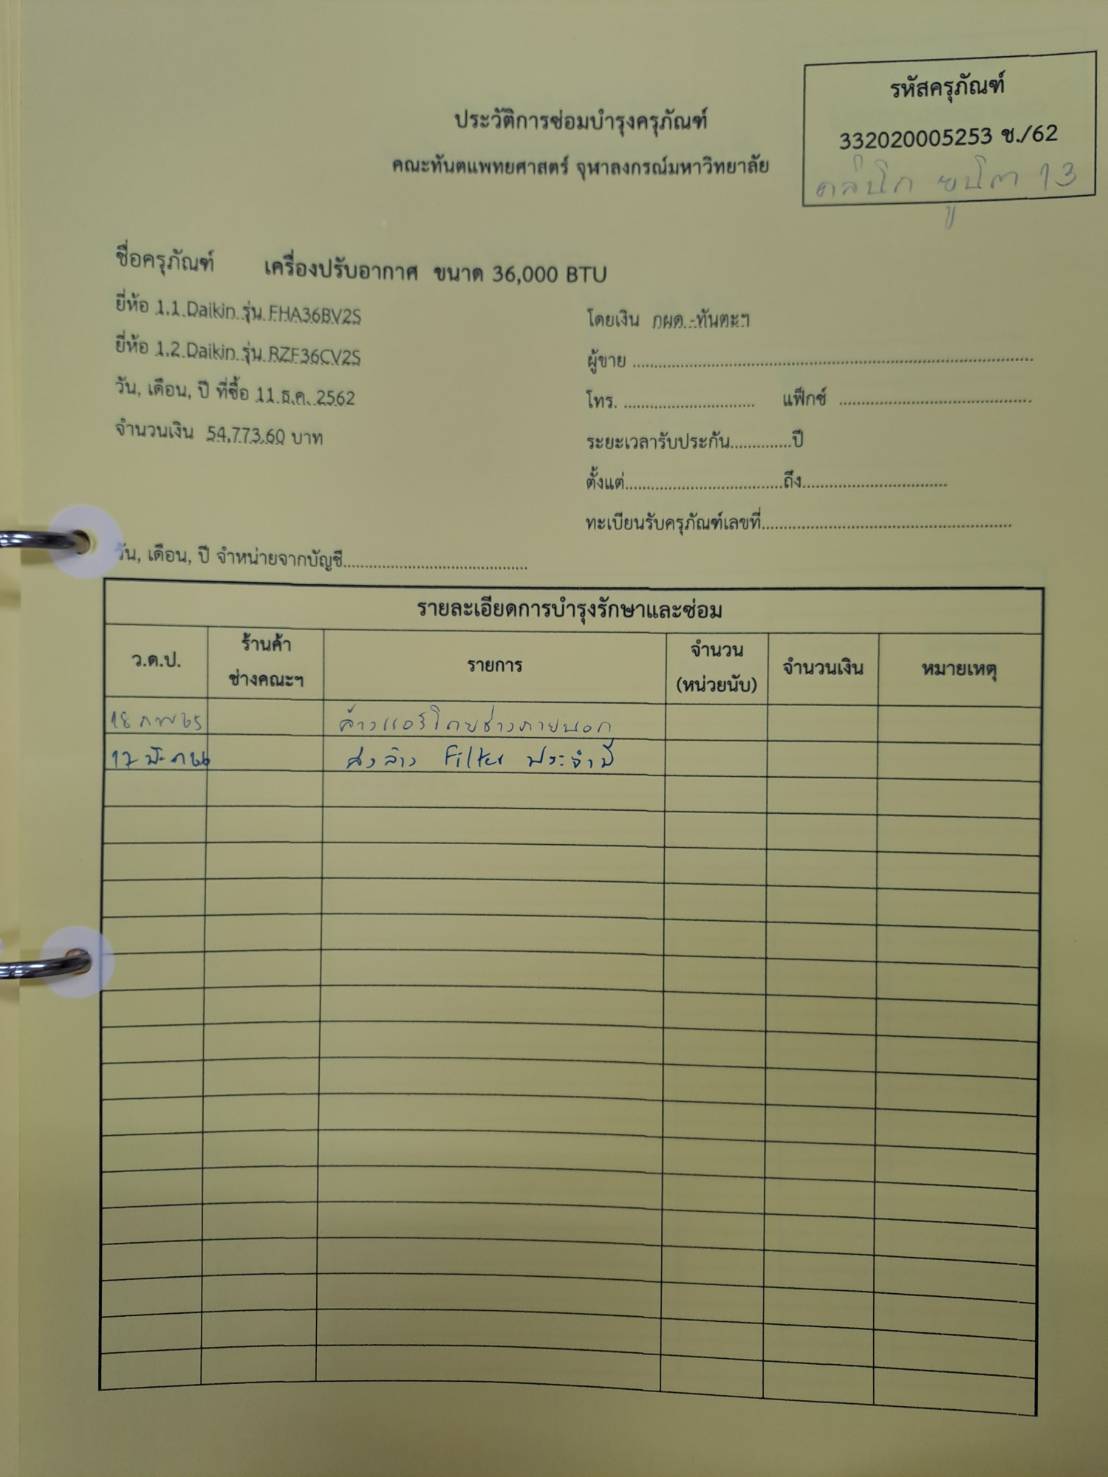 รหัสครุภัณฑ์
332020005253 ช./62
คลินิก ยูนิต 13
ประวัติการซ่อมบำรุงครุภัณฑ์
คณะทันตแพทยศาสตร์ จุฬาลงกรณ์มหาวิทยาลัย
ชื่อครุภัณฑ์ เครื่องปรับอากาศ ขนาด 36,000 BTU
ยี่ห้อ 1.1 Daikin รุ่น FHA36BV2S
โดยเงิน กผด.-ทันตะฯ
ยี่ห้อ 1.2 Daikin รุ่น RZF36CV2S
ผู้ขาย
วัน, เดือน, ปี ที่ซื้อ 11 ธ.ค. 2562
โทร. แฟ็กซ์
จำนวนเงิน 54,773.60 บาท
ระยะเวลารับประกัน.............ปี
ตั้งแต่....................................ถึง.................................
ทะเบียนรับครุภัณฑ์เลขที่.........................................................
วัน, เดือน, ปี จำหน่ายจากบัญชี..........................................
รายละเอียดการบำรุงรักษาและซ่อม
ว.ด.ป. ร้านค้า ช่างคณะฯ รายการ จำนวน (หน่วยนับ) จำนวนเงิน หมายเหตุ
ล้างแอร์โดยช่างภายนอก
ส่งล้าง Filter ประจำปี